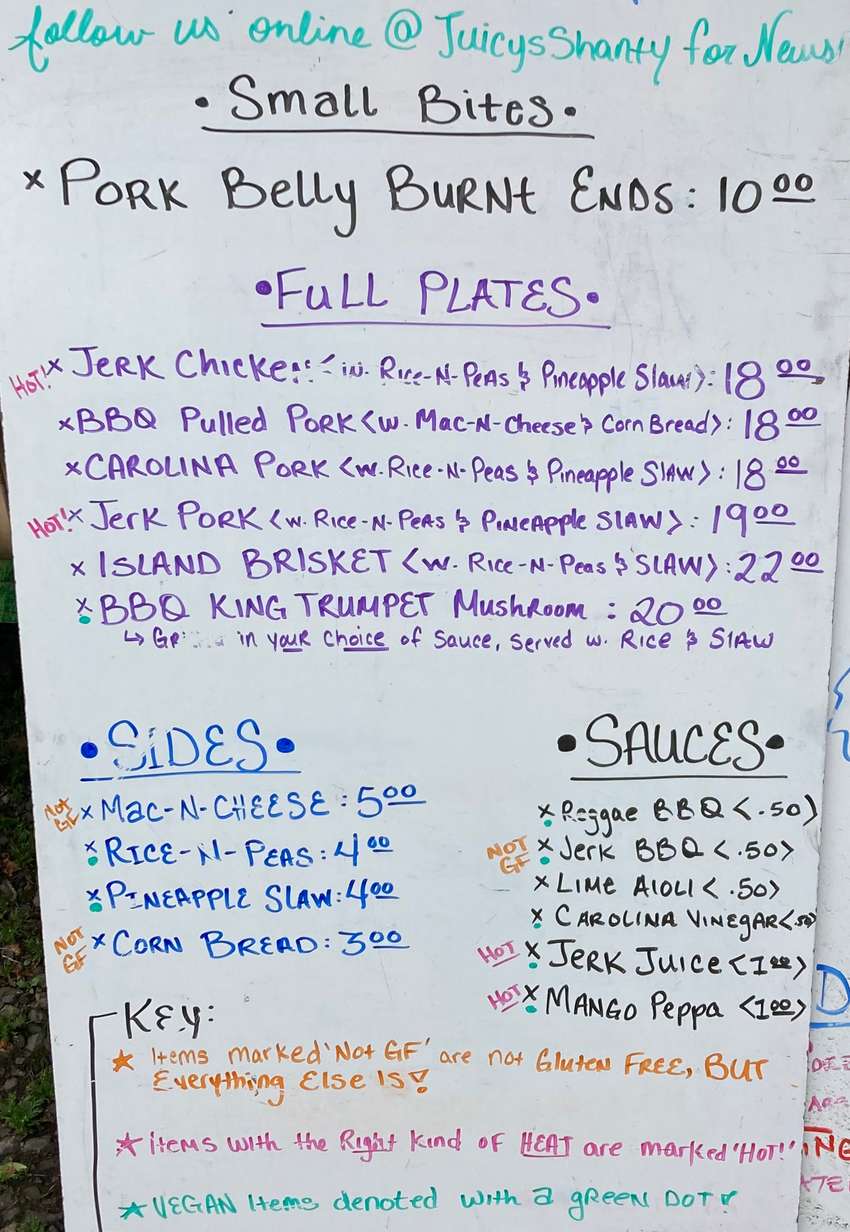 follow us online @ JuicysShanty for News!
• Small Bites •
x PORK Belly BURNt ENDS: 10 00
• FULL PLATES •
HOT! x JERK Chicken <w. Rice-N-Peas & Pineapple Slaw>: 18 00
x BBQ Pulled PORK <w. Mac-N-Cheese & Corn Bread>: 18 00
x CAROLINA PORK <w. Rice-N-Peas & Pineapple SlAW>: 18 00
HOT! x Jerk PORK <w. Rice-N-PEAS & PINEAPPLE SlAW>: 19 00
x ISLAND BRISKET <w. Rice-N-Peas & SLAW>: 22 00
x BBQ KING TRUMPET MushRoom: 20 00
↳ in your choice of Sauce, Served w. Rice & SlAW
• SIDES •
NOT GF x MAC-N-CHEESE: 5 00
x RICE-N-PEAS: 4 00
x PINEAPPLE SLAW: 4 00
NOT GF x CORN BREAD: 3 00
• SAUCES •
x Reggae BBQ <.50>
NOT GF x Jerk BBQ <.50>
x LIME AIOLI <.50>
x CAROLINA VINEGAR <.50>
HOT x JERK JUICE <1 00>
HOT x MANGO Peppa <1 00>
KEY:
★ Items marked 'Not GF' are not Gluten FREE, BUT
Everything Else Is!
★ items with the Right kind of HEAT are marked 'HOT!'
★ VEGAN Items denoted with a gREEN DOT!